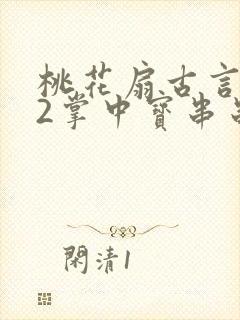 桃花扇古言
2掌中寶串
閑清1